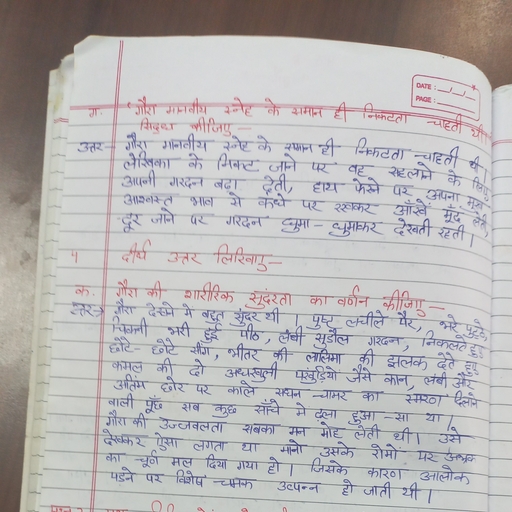 DATE: __/__/__
PAGE: ____
ग. 'गौरा मानवीय स्नेह के समान ही निकटता चाहती थी।'
सिद्ध कीजिए —
उत्तर- गौरा मानवीय स्नेह के समान ही निकटता चाहती थी।
लेखिका के निकट जाने पर वह सहलाने के लिए
अपनी गरदन बढ़ा देती, हाथ फेरने पर अपना मुख
आश्वस्त भाव से कंधे पर रखकर आँखें मूँद लेती
दूर जाने पर गरदन घुमा-घुमाकर देखती रहती।
4 दीर्घ उत्तर लिखिए—
क. गौरा की शारीरिक सुंदरता का वर्णन कीजिए—
उत्तर→ गौरा देखने में बहुत सुंदर थी। पुष्ट लचीले पैर, भरे पुट्ठे,
चिकनी भरी हुई पीठ, लंबी सुडौल गरदन, निकलते हुए
छोटे-छोटे सींग, भीतर की लालिमा की झलक देते हुए
कमल की दो अधखुली पंखुड़ियों जैसे कान, लंबी और
अंतिम छोर पर काले सघन चामर का स्मरण दिलाने
वाली पूँछ सब कुछ साँचे में ढला हुआ-सा था।
गौरा की उज्ज्वलता सबका मन मोह लेती थी। उसे
देखकर ऐसा लगता था मानो उसके रोमों पर अभ्रक
का चूर्ण मल दिया गया हो। जिसके कारण आलोक
पड़ने पर विशेष चमक उत्पन्न हो जाती थी।